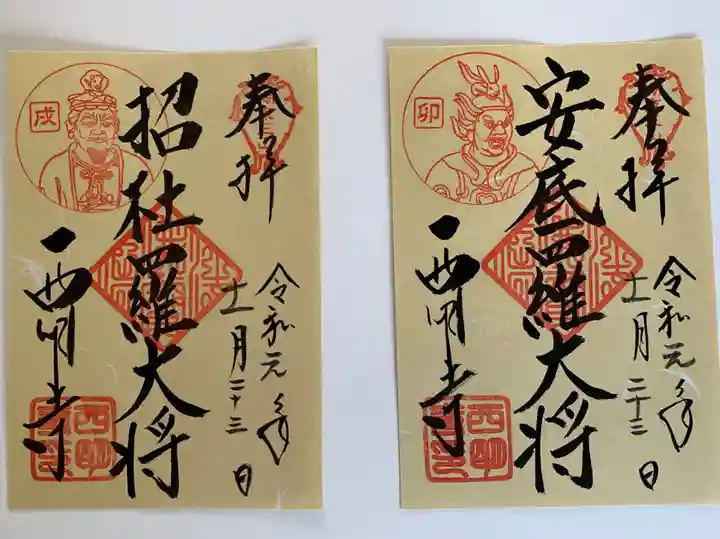 奉拝
戌
招杜羅大将
令和元年
十一月二十三日
西明寺
奉拝
卯
安底羅大将
令和元年
十一月二十三日
西明寺